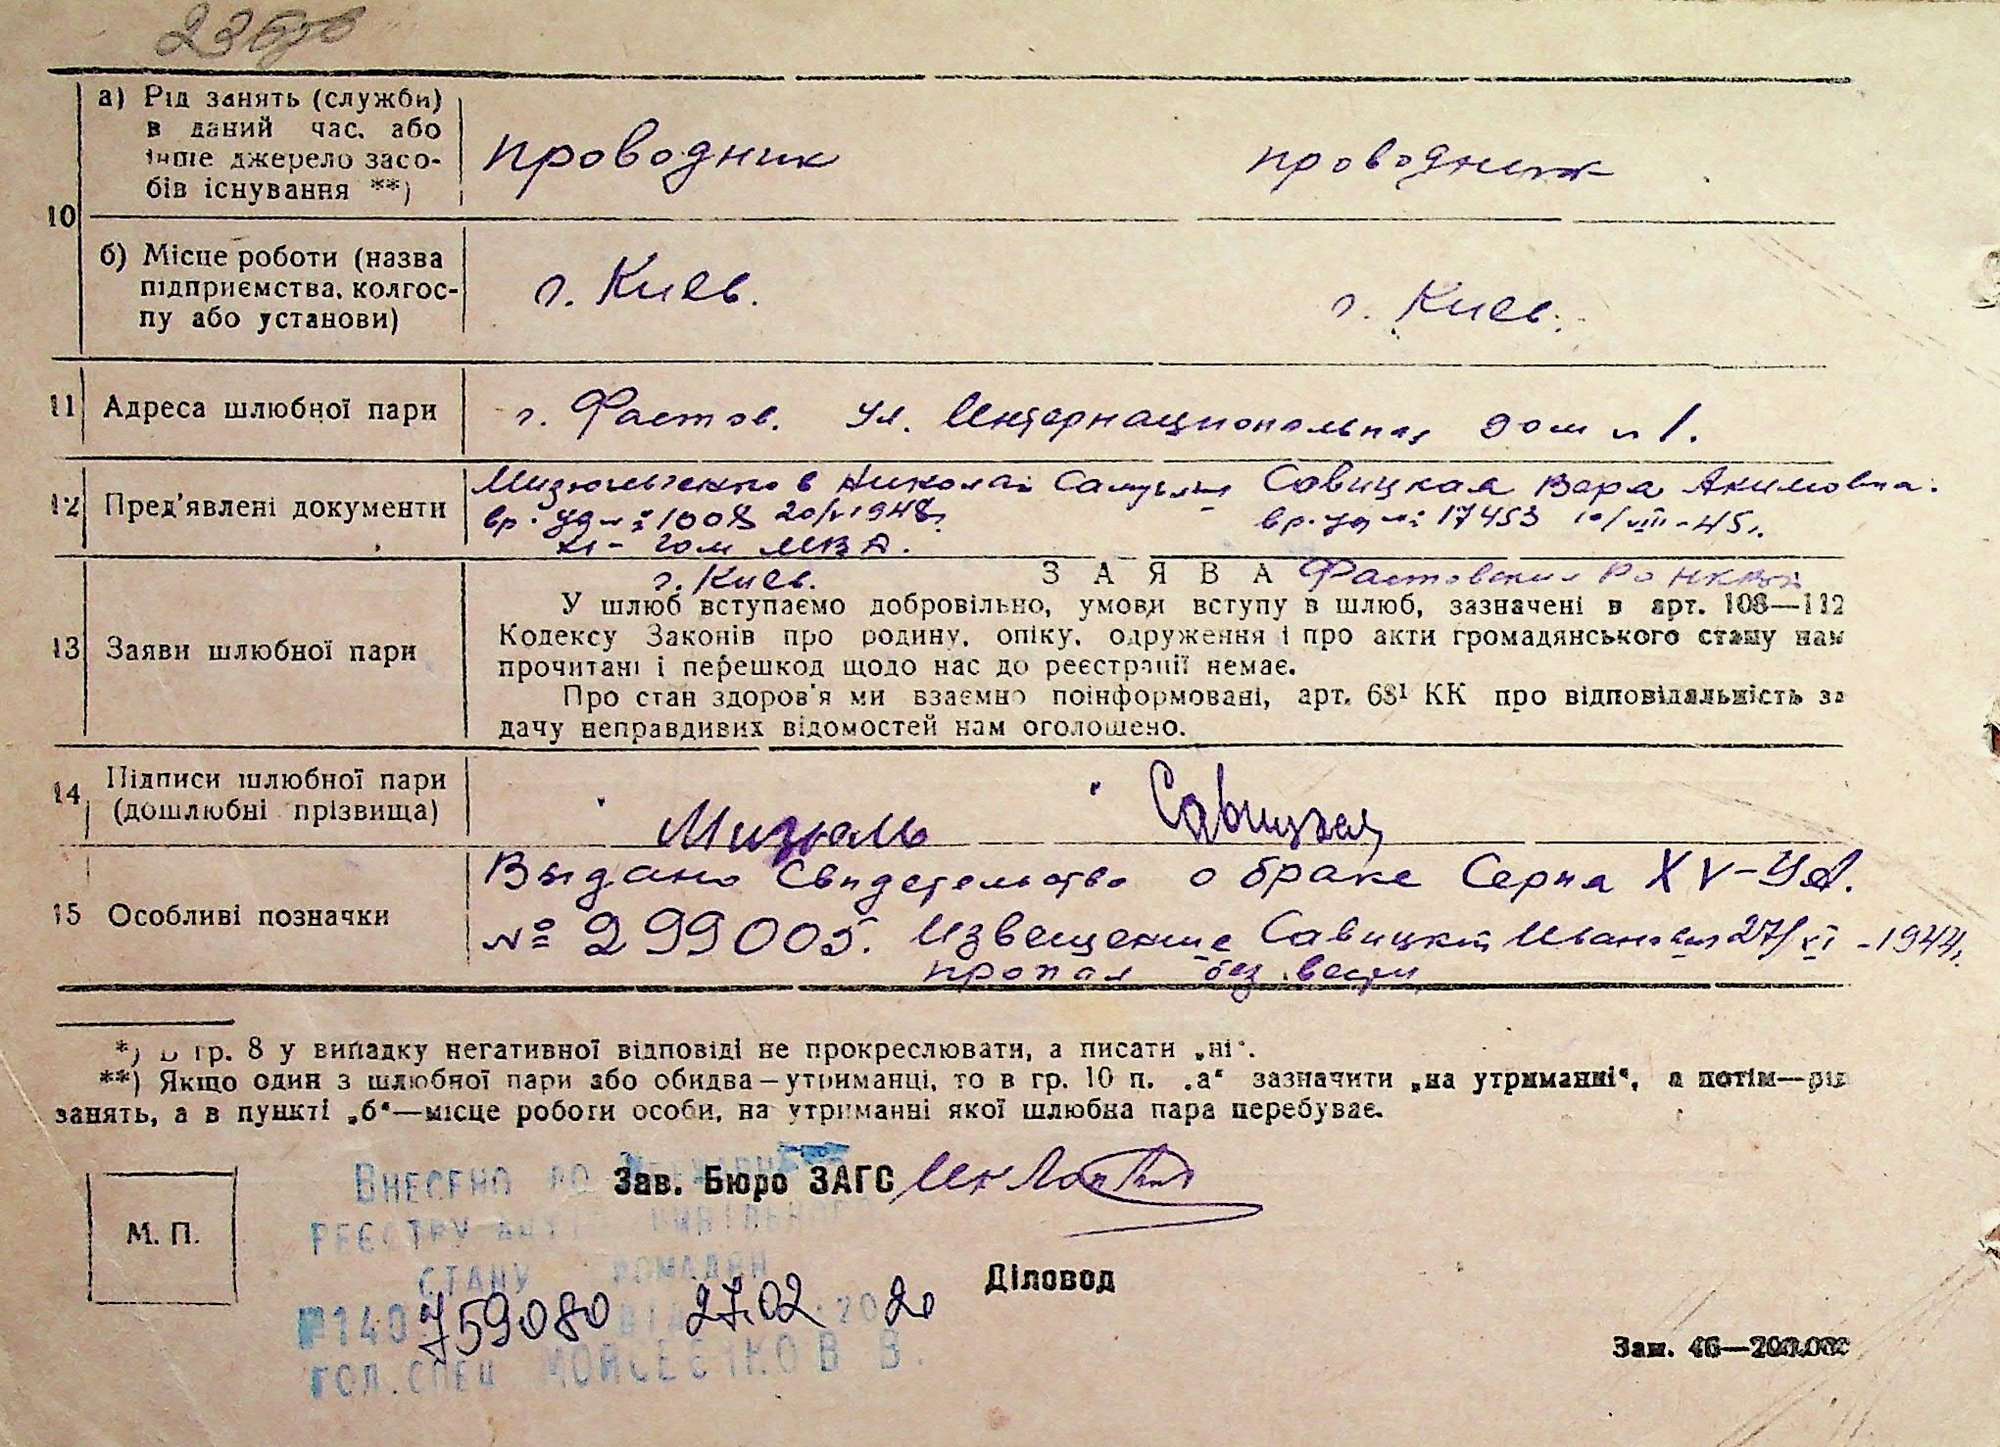 а) Рід занять (служби)
в даний час, або
інше джерело засо-
бів існування **)
проводник проводник
10
б) Місце роботи (назва
підприємства, колгос-
пу або установи)
г. Киев. г. Киев.
11 Адреса шлюбної пари г. Фастов. ул. Интернациональная дом № 1.
12 Пред'явлені документи
в Николай Савицкая Вера Акимовна.
вр. уд № 1008 20/V 1948г. вр. уд № 17453 10/VIII-45г.
МВД.
г. Киев. ЗАЯВА
13 Заяви шлюбної пари
У шлюб вступаємо добровільно, умови вступу в шлюб, зазначені в арт. 108—112
Кодексу Законів про родину, опіку, одруження і про акти громадянського стану нам
прочитані і перешкод щодо нас до реєстрації немає.
Про стан здоров'я ми взаємно поінформовані, арт. 68¹ КК про відповідальність за
дачу неправдивих відомостей нам оголошено.
14 Підписи шлюбної пари
(дошлюбні прізвища)
Мизюль Савицкая
15 Особливі позначки
Выдано Свидетельство о браке Серия XV-УА.
№ 299005. Извещение 27/XI-1944г.
пропал без вести
*) В гр. 8 у випадку негативної відповіді не прокреслювати, а писати „ні“.
**) Якщо один з шлюбної пари або обидва—утриманці, то в гр. 10 п. „а“ зазначити „на утриманні“, а потім—рід
занять, а в пункті „б“—місце роботи особи, на утриманні якої шлюбна пара перебуває.
Зав. Бюро ЗАГС
М. П.
Діловод
Внесено до
реєстру
стану громадян
№140 759080 від 27.02.2020
гол.спец Мойсеєнко В.В.
Зам. 46—200.000